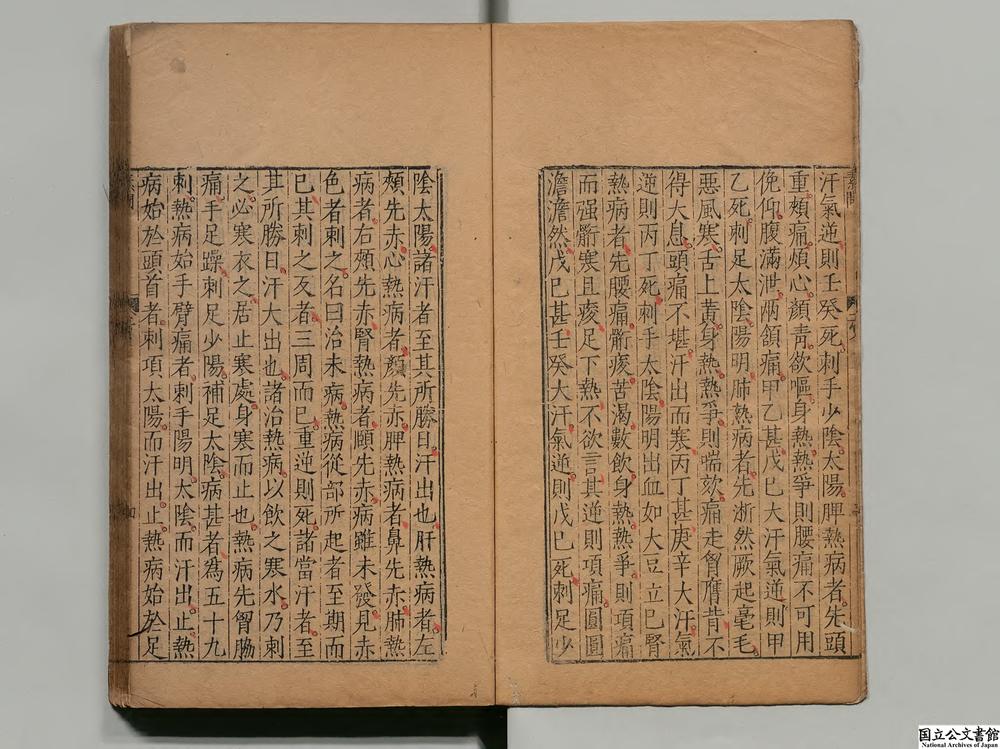 汗氣逆則壬癸死刺手少陰太陽脾熱病者先頭
重頰痛煩心顏青欲嘔身熱熱爭則腰痛不可用
俛仰腹滿泄兩頷痛甲乙甚戊己大汗氣逆則甲
乙死刺足太陰陽明肺熱病者先淅然厥起毫毛
惡風寒舌上黃身熱熱爭則喘欬痛走胷膺背不
得大息頭痛不堪汗出而寒丙丁甚庚辛大汗氣
逆則丙丁死刺手太陰陽明出血如大豆立已腎
熱病者先腰痛䯒痠苦渴數飲身熱熱爭則項痛
而强䯒寒且痠足下熱不欲言其逆則項痛圓圓
澹澹然戊己甚壬癸大汗氣逆則戊己死刺足少
陰太陽諸汗者至其所勝日汗出也肝熱病者左
頰先赤心熱病者顏先赤脾熱病者鼻先赤肺熱
病者右頰先赤腎熱病者頤先赤病雖未發見赤
色者刺之名曰治未病熱病從部所起者至期而
已其刺之反者三周而已重逆則死諸當汗者至
其所勝日汗大出也諸治熱病以飲之寒水乃刺
之必寒衣之居止寒處身寒而止也熱病先胷脇
痛手足躁刺足少陽補足太陰病甚者爲五十九
刺熱病始手臂痛者刺手陽明太陰而汗出止熱
病始於頭首者刺項太陽而汗出止熱病始於足
国立公文書館
National Archives of Japan